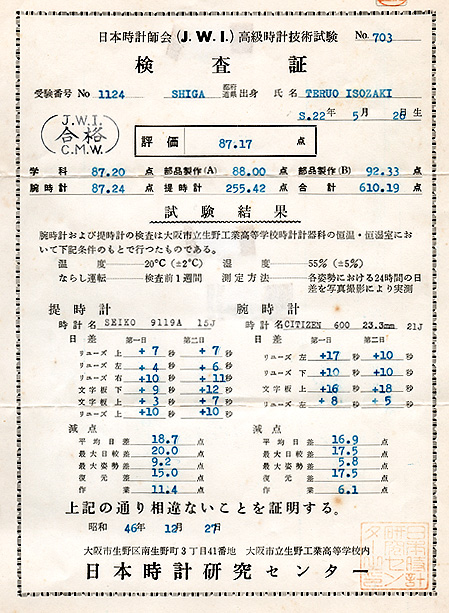 日本時計師会(J.W.I.)高級時計技術試験 No. 703
検査証
受験番号 No 1124 SHIGA 都府道県 出身 氏名 TERUO ISOZAKI
S.22年 5月 28生
J.W.I.
合格
C.M.W.
評価 87.17 点
学科 87.20 点 部品製作(A) 88.00 点 部品製作(B) 92.33 点
腕時計 87.24 点 提時計 255.42 点 合計 610.19 点
試験結果
腕時計および提時計の検査は大阪市立生野工業高等学校時計計器科の恒温・恒湿室にお
いて下記条件のもとで行つたものである。
温度 20°C (±2°C) 湿度 55% (±5%)
ならし運転 検査前1週間 測定方法 各姿勢における24時間の日
差を写真撮影により実測
提時計 腕時計
時計名 SEIKO 9119A 15J 時計名 CITIZEN 600 23.3mm 21J
日差 第一日 第二日 日差 第一日 第二日
リューズ 上 +7 秒 +7 秒 リューズ 左 +17 秒 +10 秒
リューズ 左 +4 秒 +6 秒 リューズ 下 +10 秒 +10 秒
リューズ 右 +10 秒 +11 秒 文字板 上 +16 秒 +18 秒
文字板 下 +9 秒 +12 秒 文字板 左 +8 秒 +5 秒
文字板 上 +3 秒 +7 秒
リューズ 上 +10 秒 +10 秒
減点 減点
平均日差 18.7 点 平均日差 16.9 点
最大日較差 20.0 点 最大日較差 17.5 点
最大姿勢差 9.2 点 最大姿勢差 5.8 点
復元差 15.0 点 復元差 17.5 点
作業 11.4 点 作業 6.1 点
上記の通り相違ないことを証明する。
昭和 46年 12月 27日
大阪市生野区南生野町3丁目41番地 大阪市立生野工業高等学校内
日本時計研究センター